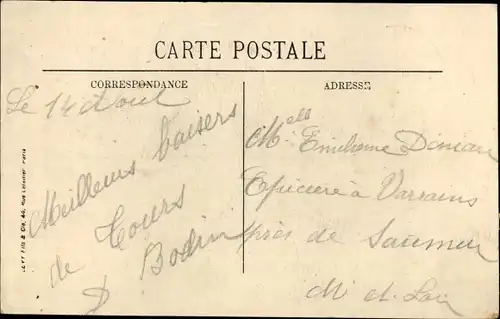 CARTE POSTALE
CORRESPONDANCE
ADRESSE
Le 14 Août
Meilleurs baisers
de Tours
D Bodin
Melle Emilienne
Epicière à Varrains
près de Saumur
M. et Loir
LEVY Fils & Cie, 44, Rue Letellier Paris